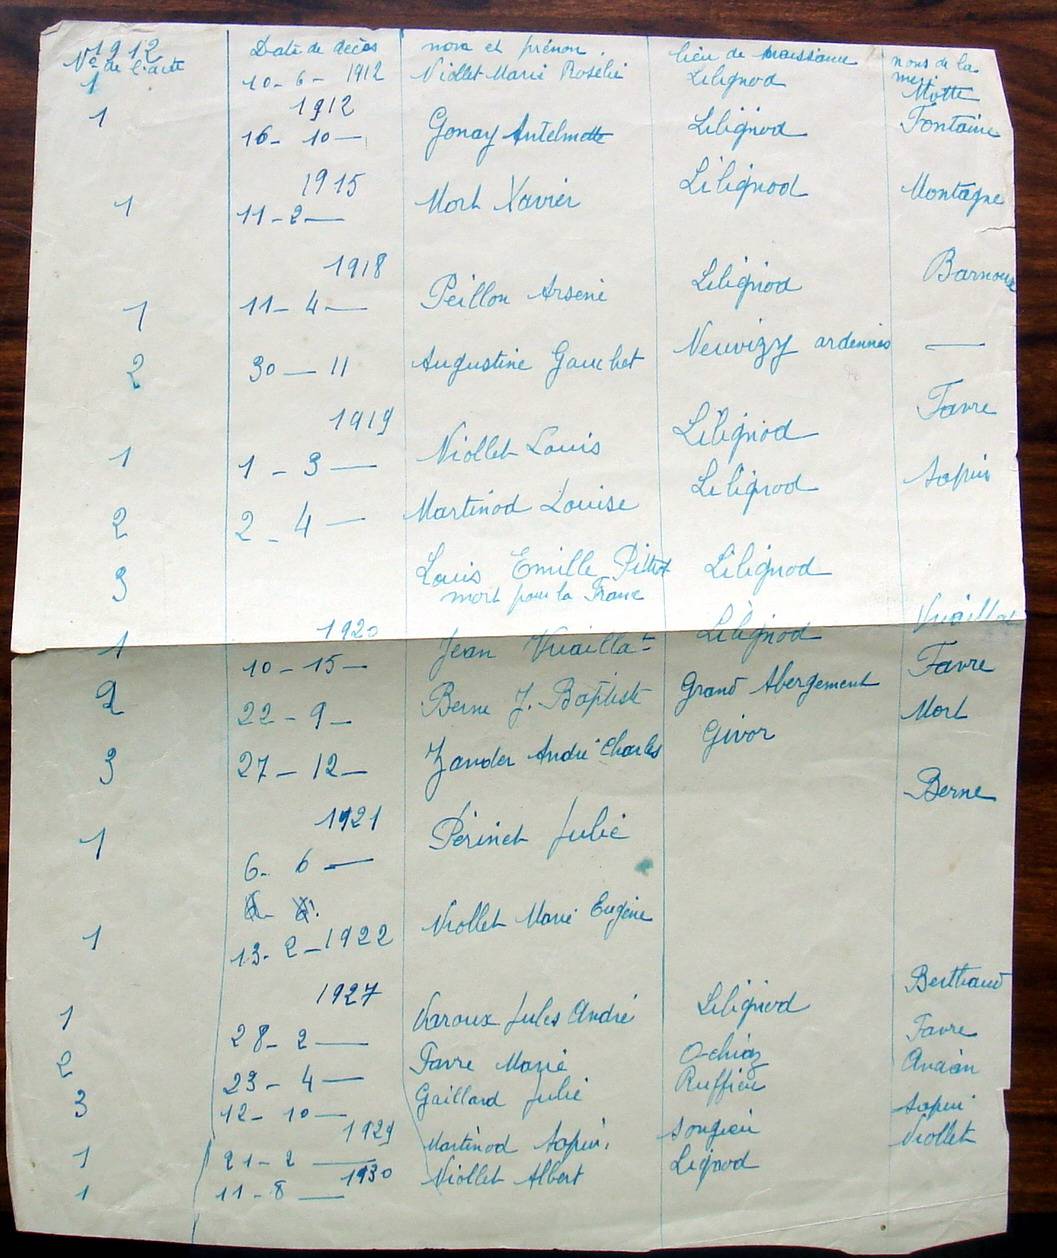 1912
N° de l'acte Date de décès nom et prénom. lieu de naissance noms de la mère
1 10-6-1912 Niollet Marie Roselie Lilignod Motte
1912
1 16-10- Gonay Antelmette Lilignod Fontaine
1915
1 11-2- Mort Xavier Lilignod Montagne
1918 Barnoux
1 11-4- Peillon Arsene Lilignod
2 30-11 Augustine Gauchet Neuvizy ardennes —
1919 Favre
1 1-3- Niollet Louis Lilignod
2 2-4- Martinod Louise Lilignod Sapin
3 Louis Emille Pittiot Lilignod
mort pour la France
1920
1 10-15- Jean Vuaillat Lilignod Vuaillat
2 22-9- Berne J. Baptiste Grand Abergement Favre
3 27-12- Zander André Charles Givor Mort
Berne
1921
1 6-6- Périnet Julie
1 13-2-1922 Niollet Marie Eugène
1927 Berthaud
1 28-2- Varoux Jules André Lilignod
2 23-4- Favre Marie Ochiaz Favre
3 12-10- Gaillard Julie Ruffieu Ancian
1929
1 21-2- Martinod Sapin. Songieu Sapin
1 11-8-1930 Niollet Albert Lignod Niollet